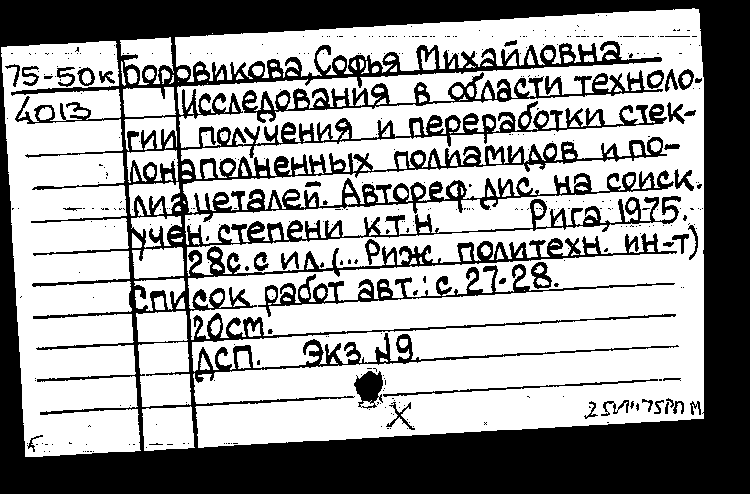 75-50к Боровикова, Софья Михайловна.
4013 Исследования в области техноло-
гии получения и переработки стек-
лонаполненных полиамидов и по-
лиацеталей. Автореф. дис. на соиск.
учен. степени к.т.н. Рига, 1975.
28с. с ил. (... Риж. политехн. ин-т)
Список работ авт.: с. 27-28.
20см.
ДСП. Экз N9.
X